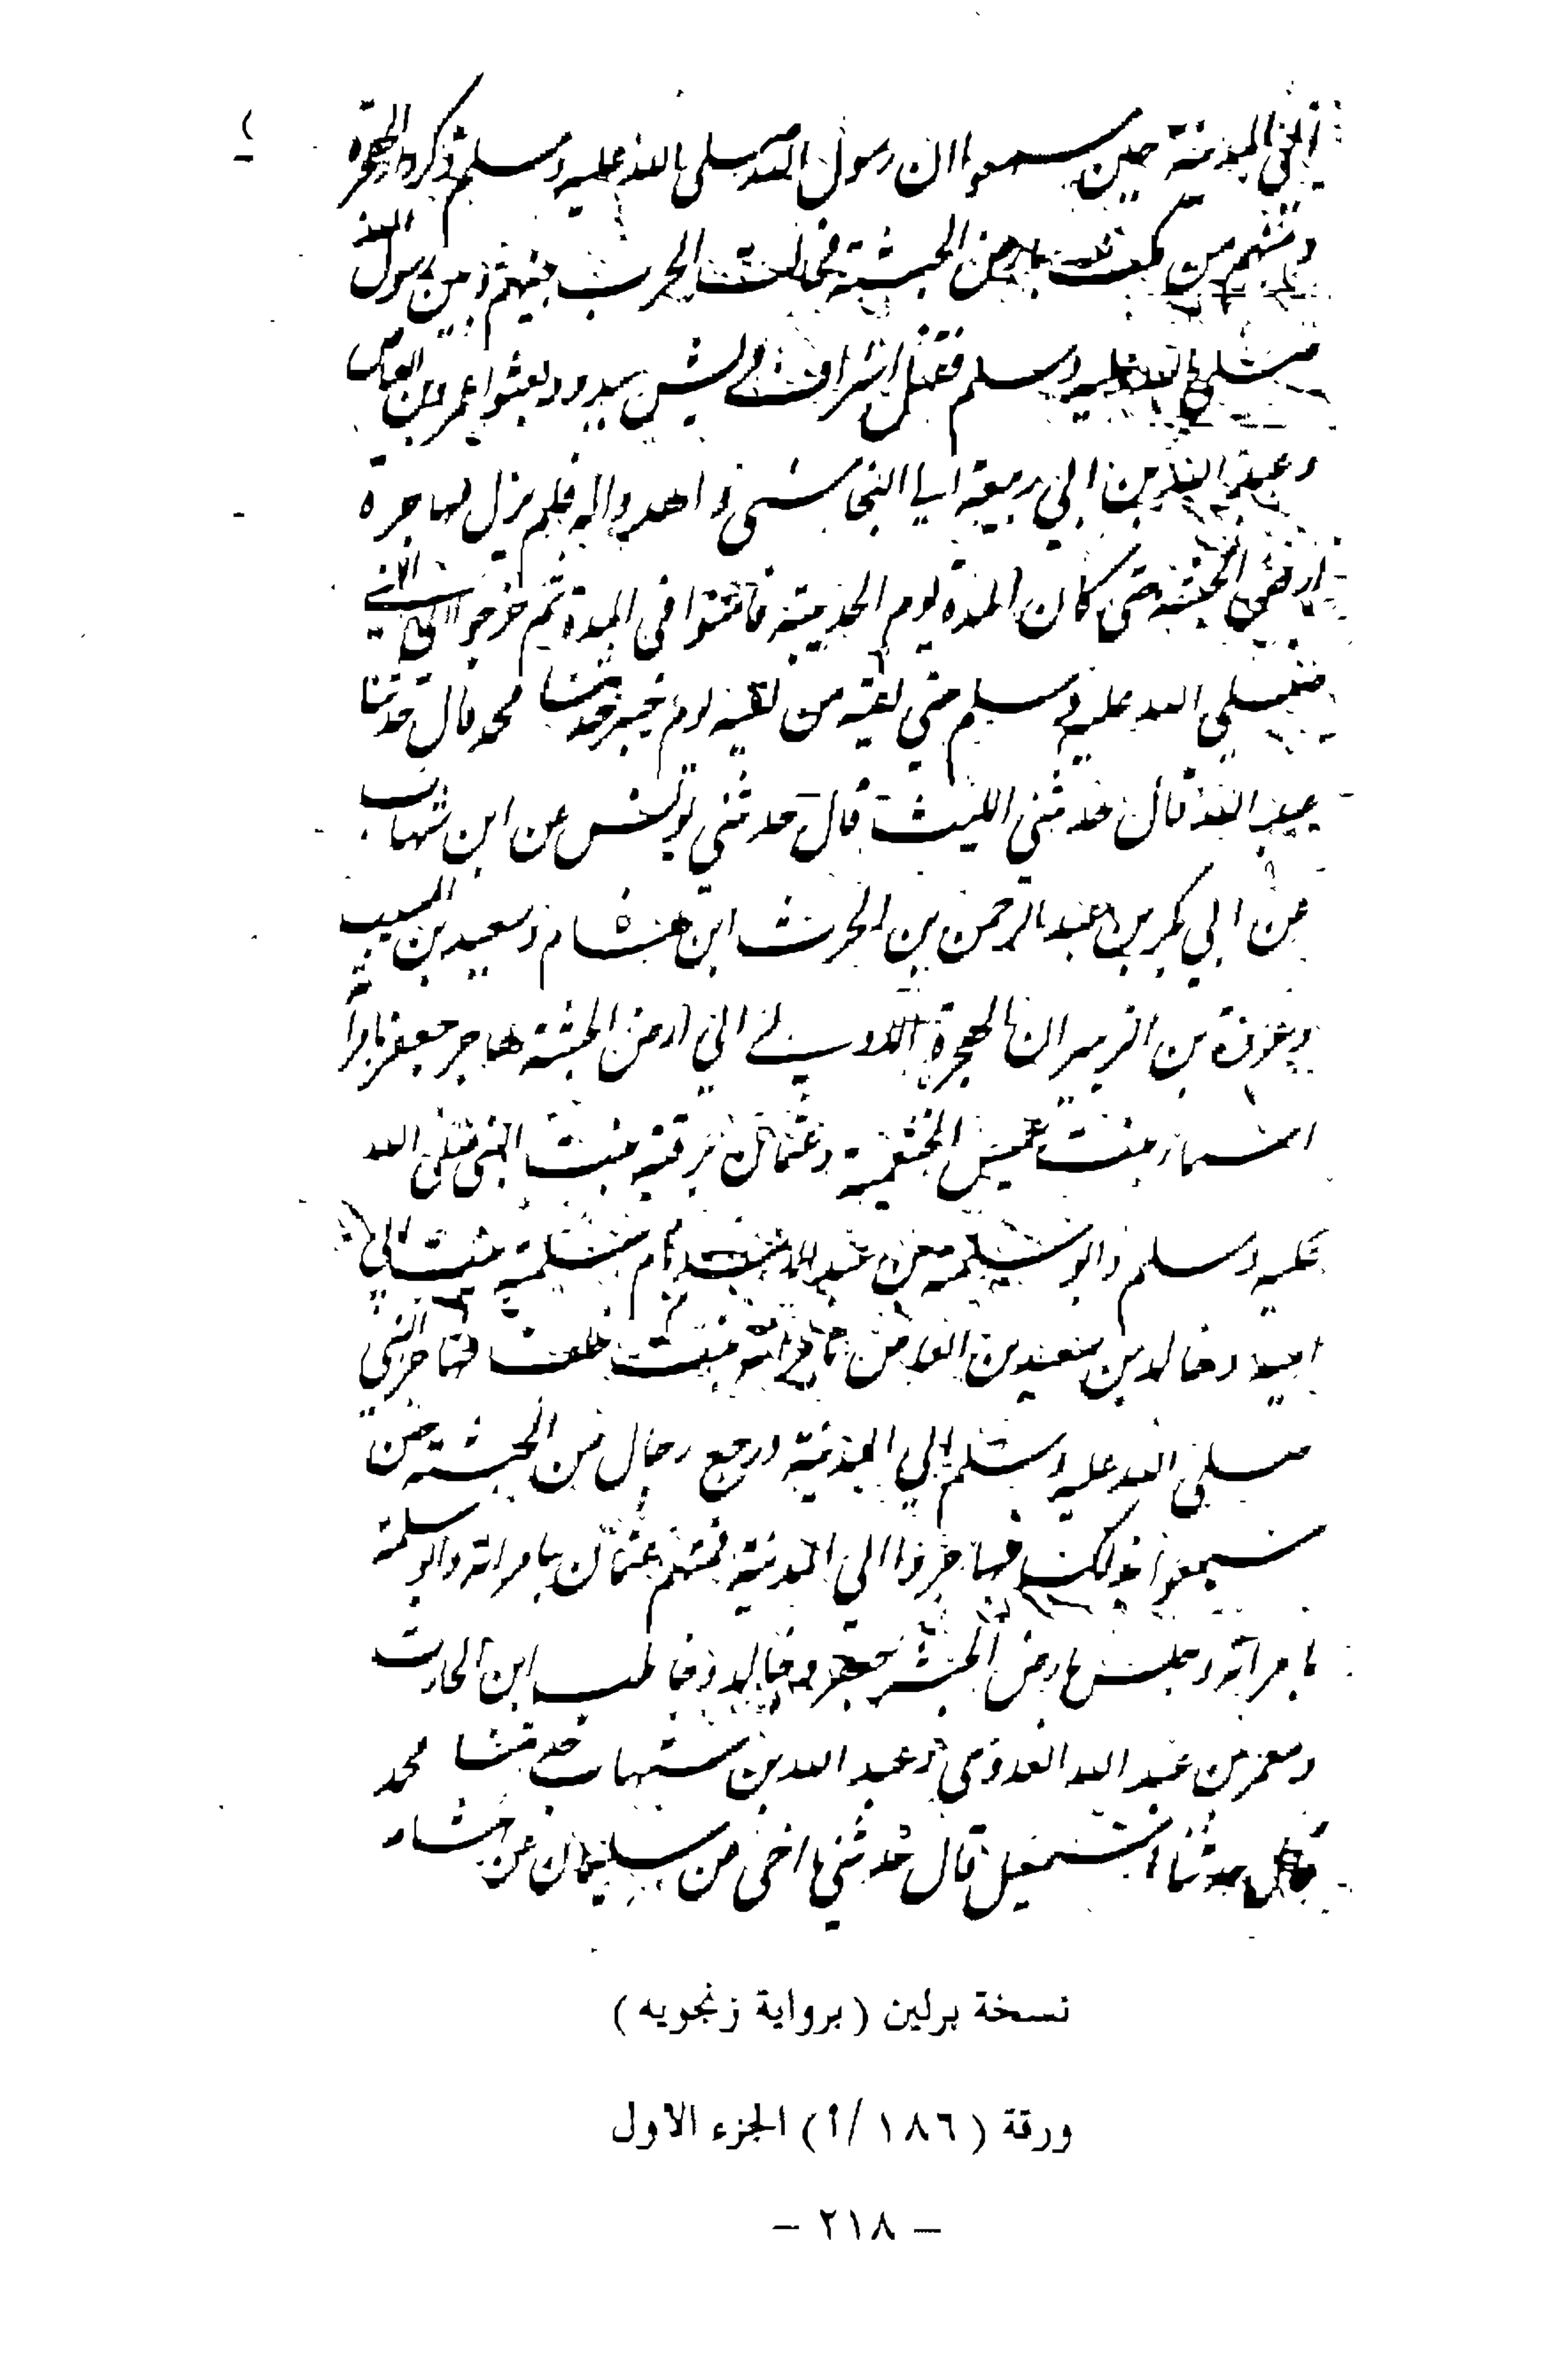 الى المدينة حين سمعوا ان رسول الله صلى الله عليه وسلم ذكر الهجرة
ومنهم من مكث بارض الحبشة فحالت الحرب بينهم وبين رسول الله
صلى الله عليه وسلم فقتل اشراف قريش ببدر وبعثوا عمرو بن العاص
وعبد الله بن ابي ربيعة الى النجاشي واهدوا له فلم يزل مهاجرة
ارض الحبشة حتى كان المدة يوم الحديبية فامنوا في المدة ثم خرجوا الى النبي
صلى الله عليه وسلم حتى لقيه من لقيه يوم خيبر حدثنا محمد قال حدثنا
عبد الله قال حدثني الليث قال حدثني يونس عن ابن شهاب
عن ابي بكر بن عبد الرحمن بن الحرث ابن هشام وسعيد بن المسيب
وعروة بن الزبير ان الهجرة الاولى الى ارض الحبشة هاجر جعفر بامراته
اسماء بنت عميس الخثعمية وعثمان برقية بنت النبي صلى الله
عليه وسلم وابو سلمة بن عبد الاسد بام سلمة بنت ابي
امية وخالد بن سعيد بن العاص بامراته بنت خلف فهاجر النبي
صلى الله عليه وسلم الى المدينة ورجع رجال من الحبشة حين
سمعوا بذلك فهاجروا الى المدينة فمنهم عثمان بامراته وابو سلمة
بامراته وجلس بارض الحبشة جعفر وخالد وحاطب ابن الحارث
ومعمر بن عبد الله العدوي وعبد الله بن شهاب حدثنا محمد
قال حدثنا اسمعيل قال حدثني اخي عن سليمان عن هشام
نسخة برلين (برواية زنجويه)
ورقة (١٨٦/أ) الجزء الاول
– ٢١٨ –